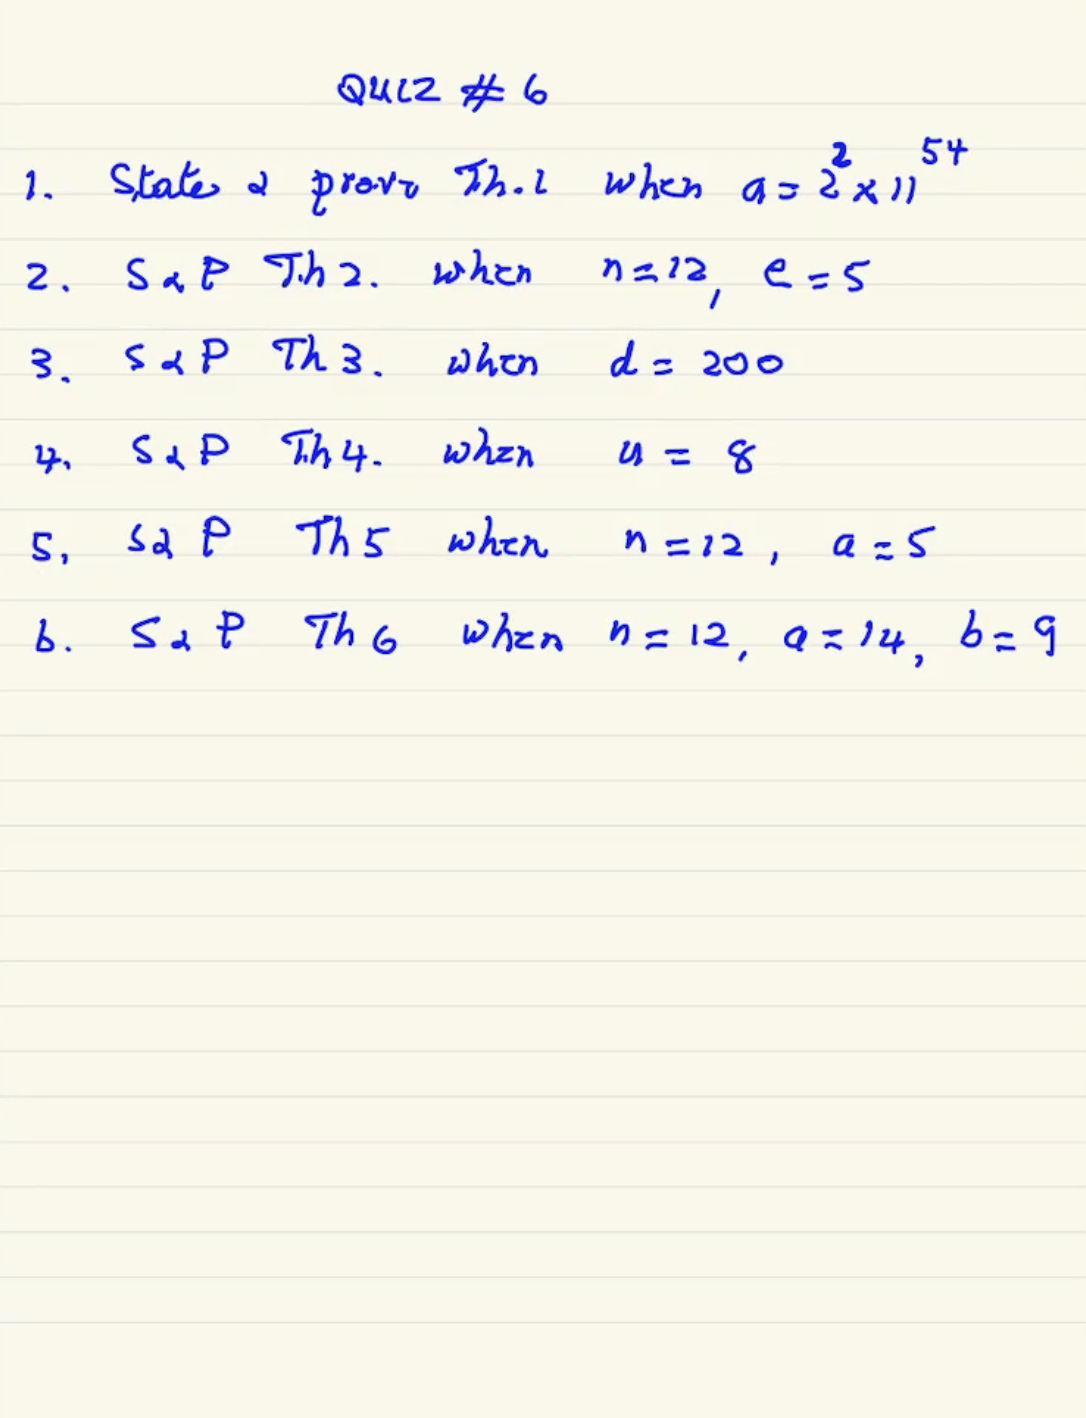 QUIZ # 6
1. State & prove Th.1 when a = 2² × 11⁵⁴
2. S & P Th 2. when n = 12, e = 5
3. S & P Th 3. when d = 200
4. S & P Th 4. when u = 8
5, S & P Th 5 when n = 12, a = 5
6. S & P Th 6 when n = 12, a = 14, b = 9